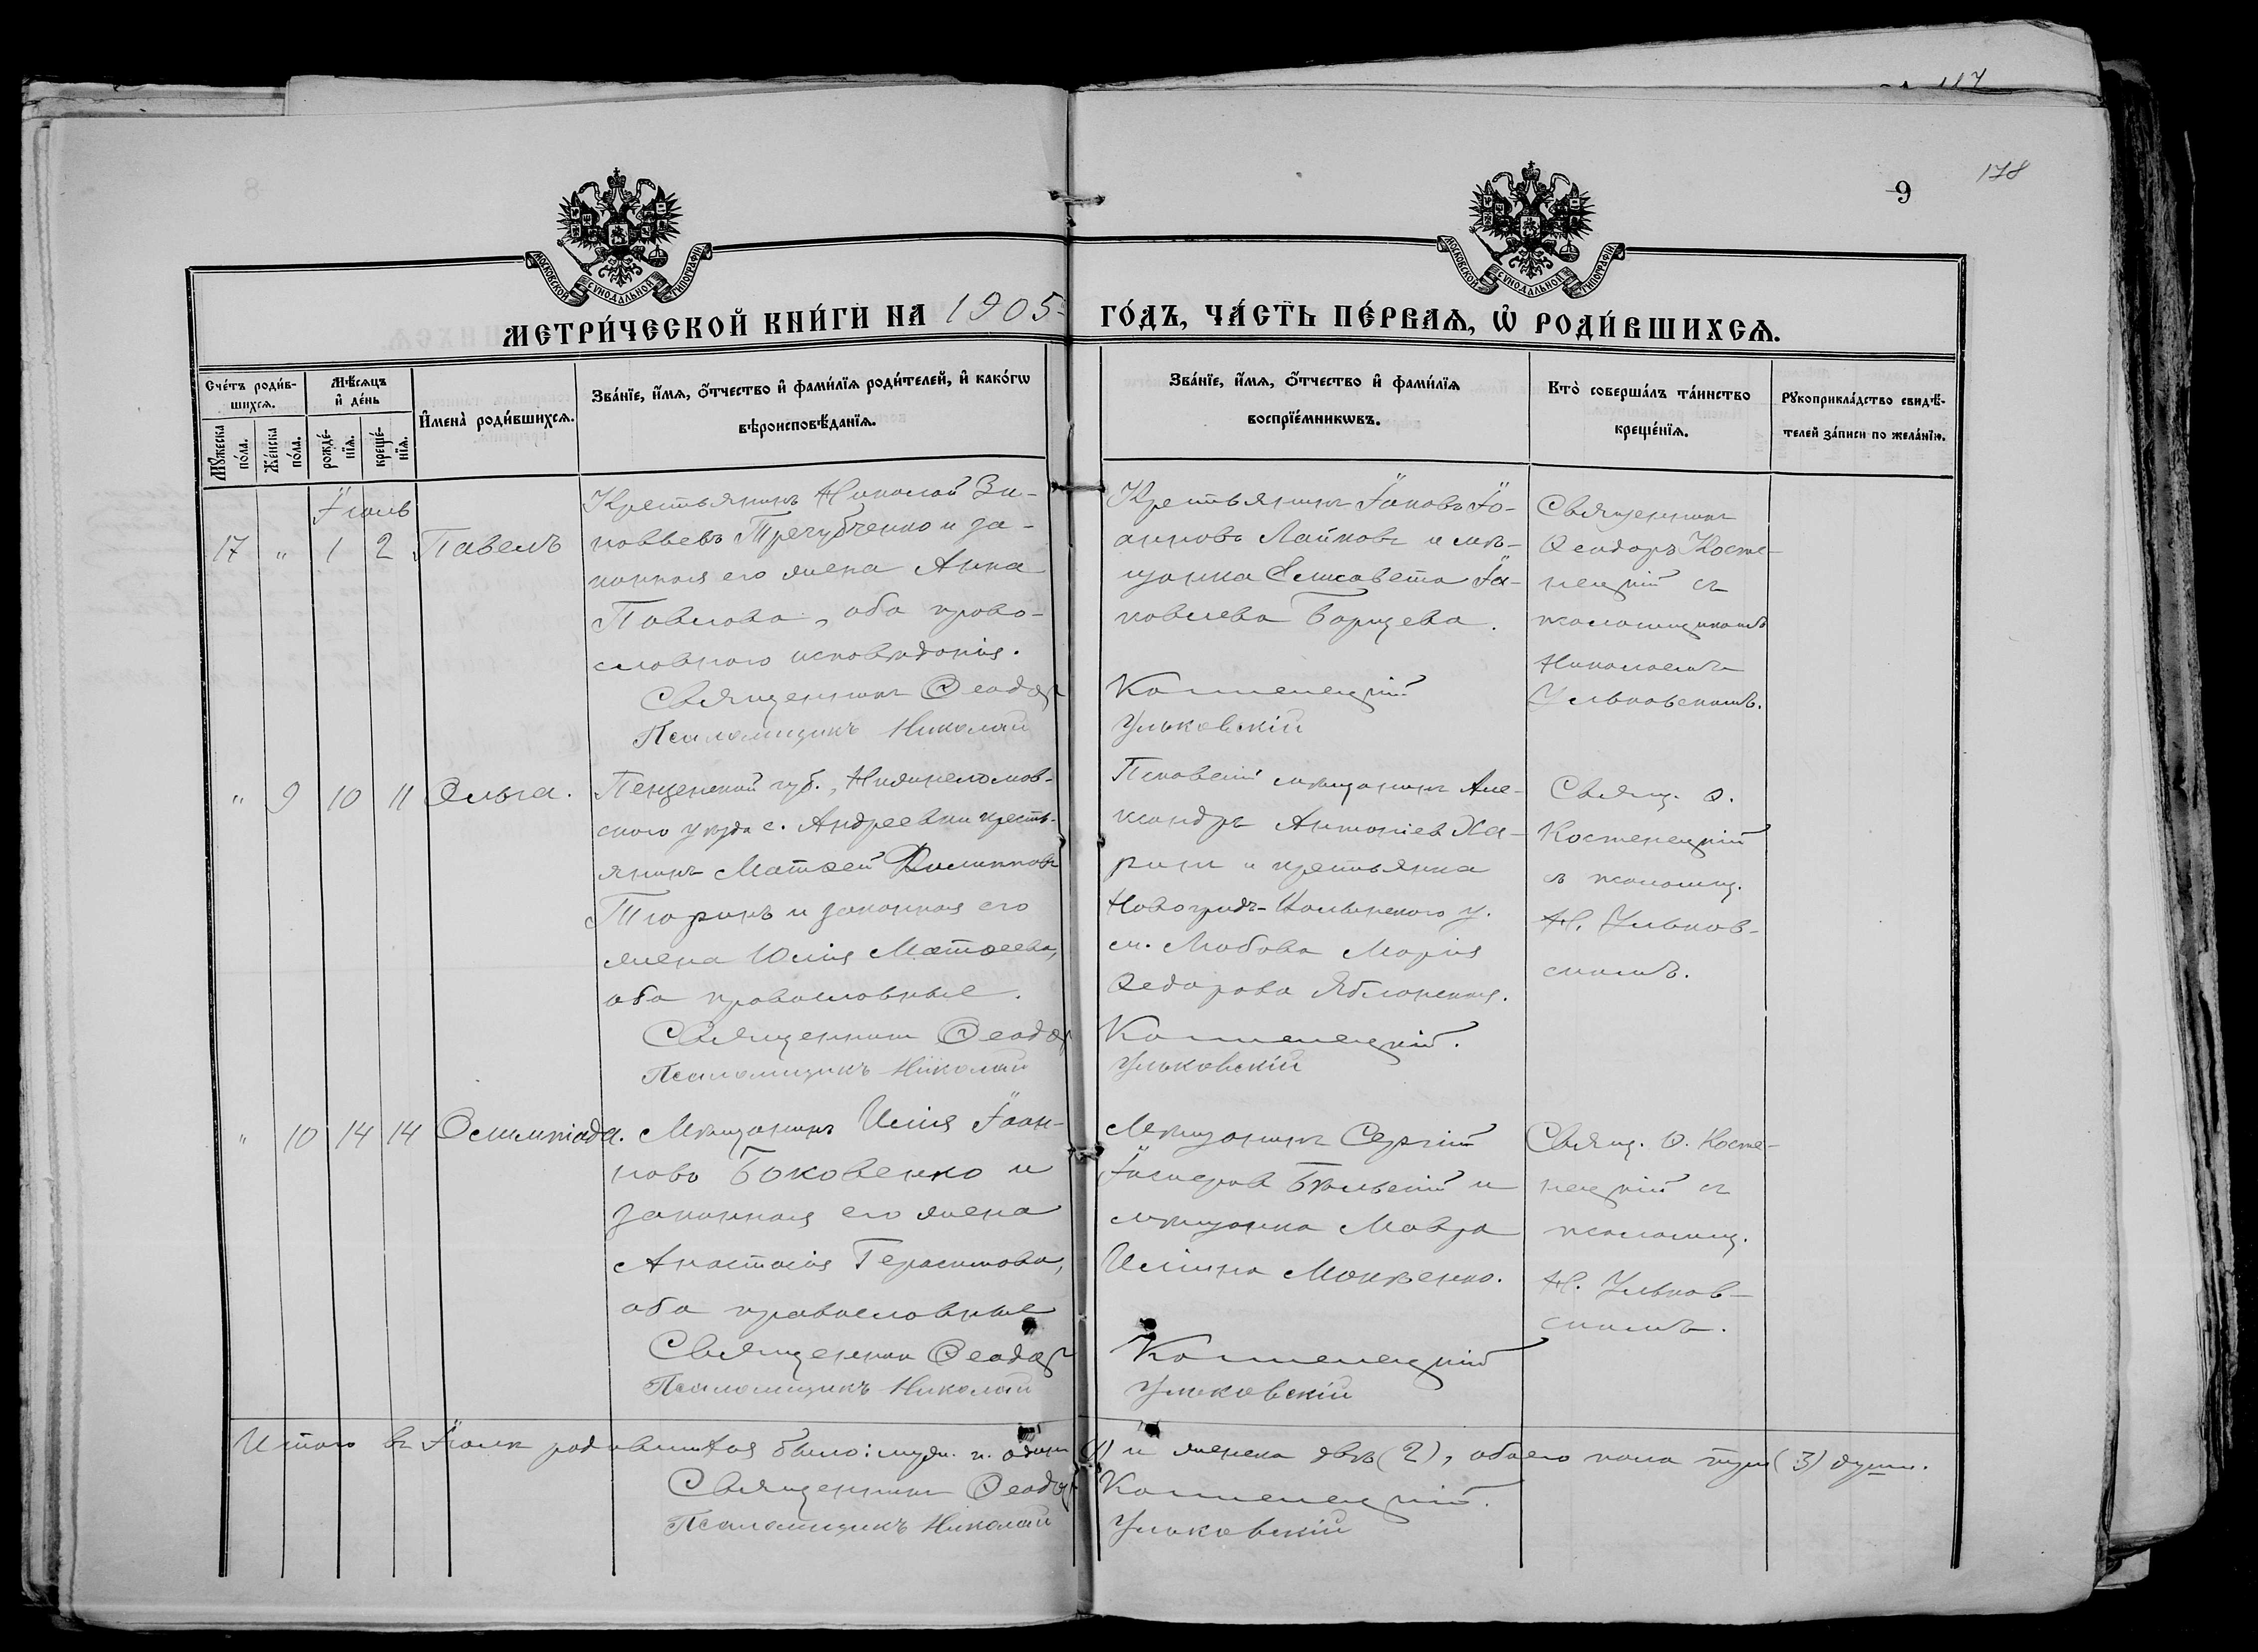 117
178
9
МОСКОВСКОЙ СУНОДАЛЬНОЙ ТИПОГРАФІИ
МОСКОВСКОЙ СУНОДАЛЬНОЙ ТИПОГРАФІИ
МЕТРИ́ЧЕСКОЙ КНИ́ГИ НА 1905 ГО́ДЪ, ЧА́СТЬ ПЕ́РВАѦ, Ѡ҆ РОДИ́ВШИХСѦ.
Сче́тъ роди́в-
шихсѧ.
Мѣ́сѧцъ
и҆ де́нь
Мꙋ́жеска
по́ла.
Же́нска
по́ла.
рожде́-
нїѧ.
креще́-
нїѧ.
И҆мена̀ роди́вшихсѧ.
Зва́нїе, и҆́мѧ, ѻ҆́тчество и҆ фами́лїѧ роди́телей, и҆ како́гѡ
вѣроисповѣ́данїѧ.
Зва́нїе, и҆́мѧ, ѻ҆́тчество и҆ фами́лїѧ
воспрїе́мникѡвъ.
Кто̀ соверша́лъ та́инство
креще́нїѧ.
Рꙋкоприкла́дство свидѣ́-
телей за́писи по жела́нїю.
Іюль
17 " 1 2 Павелъ
Крестьянинъ Николай Зи-
новьевъ Трегубченко и за-
конная его жена Анна
Павлова, оба право-
славного исповѣданія.
Священникъ Ѳеодоръ
Псаломщикъ Николай
Крестьянинъ Іаковъ Іо-
анновъ Лайковъ и мѣ-
щанка Елисавета Іа-
ковлева Борщева.
Костенецкій
Ульковскій
Священникъ
Ѳеодоръ Косте-
нецкій съ
псаломщикомъ
Николаемъ
Ульковскимъ.
" 9 10 11 Ольга.
Пензенской губ., Нижнеломов-
ского уѣзда с. Андреевки кресть-
янинъ Матѳей
Тюринъ и законная его
жена Юлія Матѳеева,
оба православные.
Священникъ Ѳеодоръ
Псаломщикъ Николай
Псковскій мѣщанинъ Але-
ксандръ Антоніевъ Ха-
ринъ и крестьянка
Новоградъ-Волынского у.
м. Любова Марія
Ѳедорова Яблонская.
Костенецкій.
Ульковскій
Свящ. Ѳ.
Костенецкій
съ псаломщ.
Н. Ульков-
скимъ.
" 10 14 14 Олимпіада.
Мѣщанинъ Илія Іоан-
новъ Боковенко и
законная его жена
Анастасія Герасимова,
оба православные
Священникъ Ѳеодоръ
Псаломщикъ Николай
Мѣщанинъ Сергій
Бѣльскій и
мѣщанка Мавра
Иліина Мокѣенко.
Костенецкій
Ульковскій
Свящ. Ѳ. Косте-
нецкій съ
псаломщ.
Н. Ульков-
скимъ.
Итого въ Іюлѣ родившихся было: муж. п. одинъ (1) и женска двѣ (2), обоего пола три (3) души.
Священникъ Ѳеодоръ Костенецкій.
Псаломщикъ Николай Ульковскій